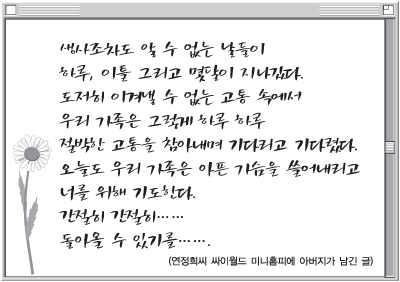 생사조차도 알 수 없는 날들이
하루, 이틀 그리고 몇달이 지나갔다.
도저히 이겨낼 수 없는 고통 속에서
우리 가족은 그렇게 하루 하루
절박한 고통을 참아내며 기다리고 기다렸다.
오늘도 우리 가족은 아픈 가슴을 쓸어내리고
너를 위해 기도한다.
간절히 간절히……
돌아올 수 있기를…….
(연정희씨 싸이월드 미니홈피에 아버지가 남긴 글)